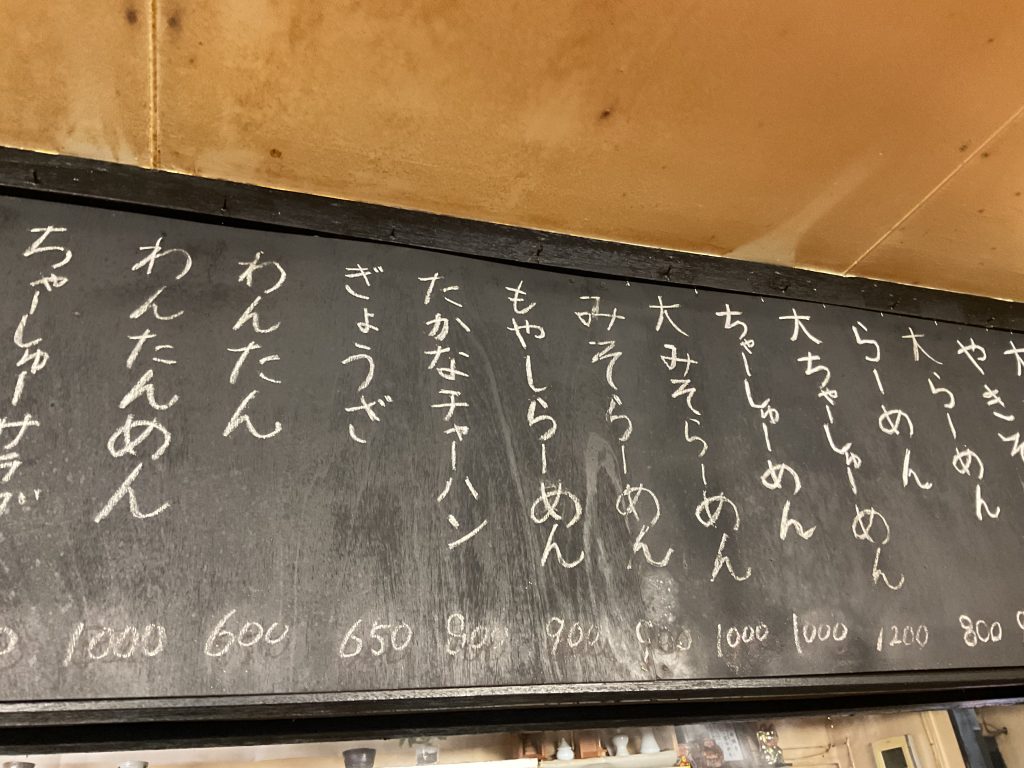 大
やきそ
大らーめん
らーめん 800
大ちゃーしゅーめん 1200
ちゃーしゅーめん 1000
大みそらーめん 1000
みそらーめん 900
もやしらーめん 900
たかなチャーハン 800
ぎょうざ 650
わんたん 600
わんたんめん 1000
ちゃーしゅーサラダ 0